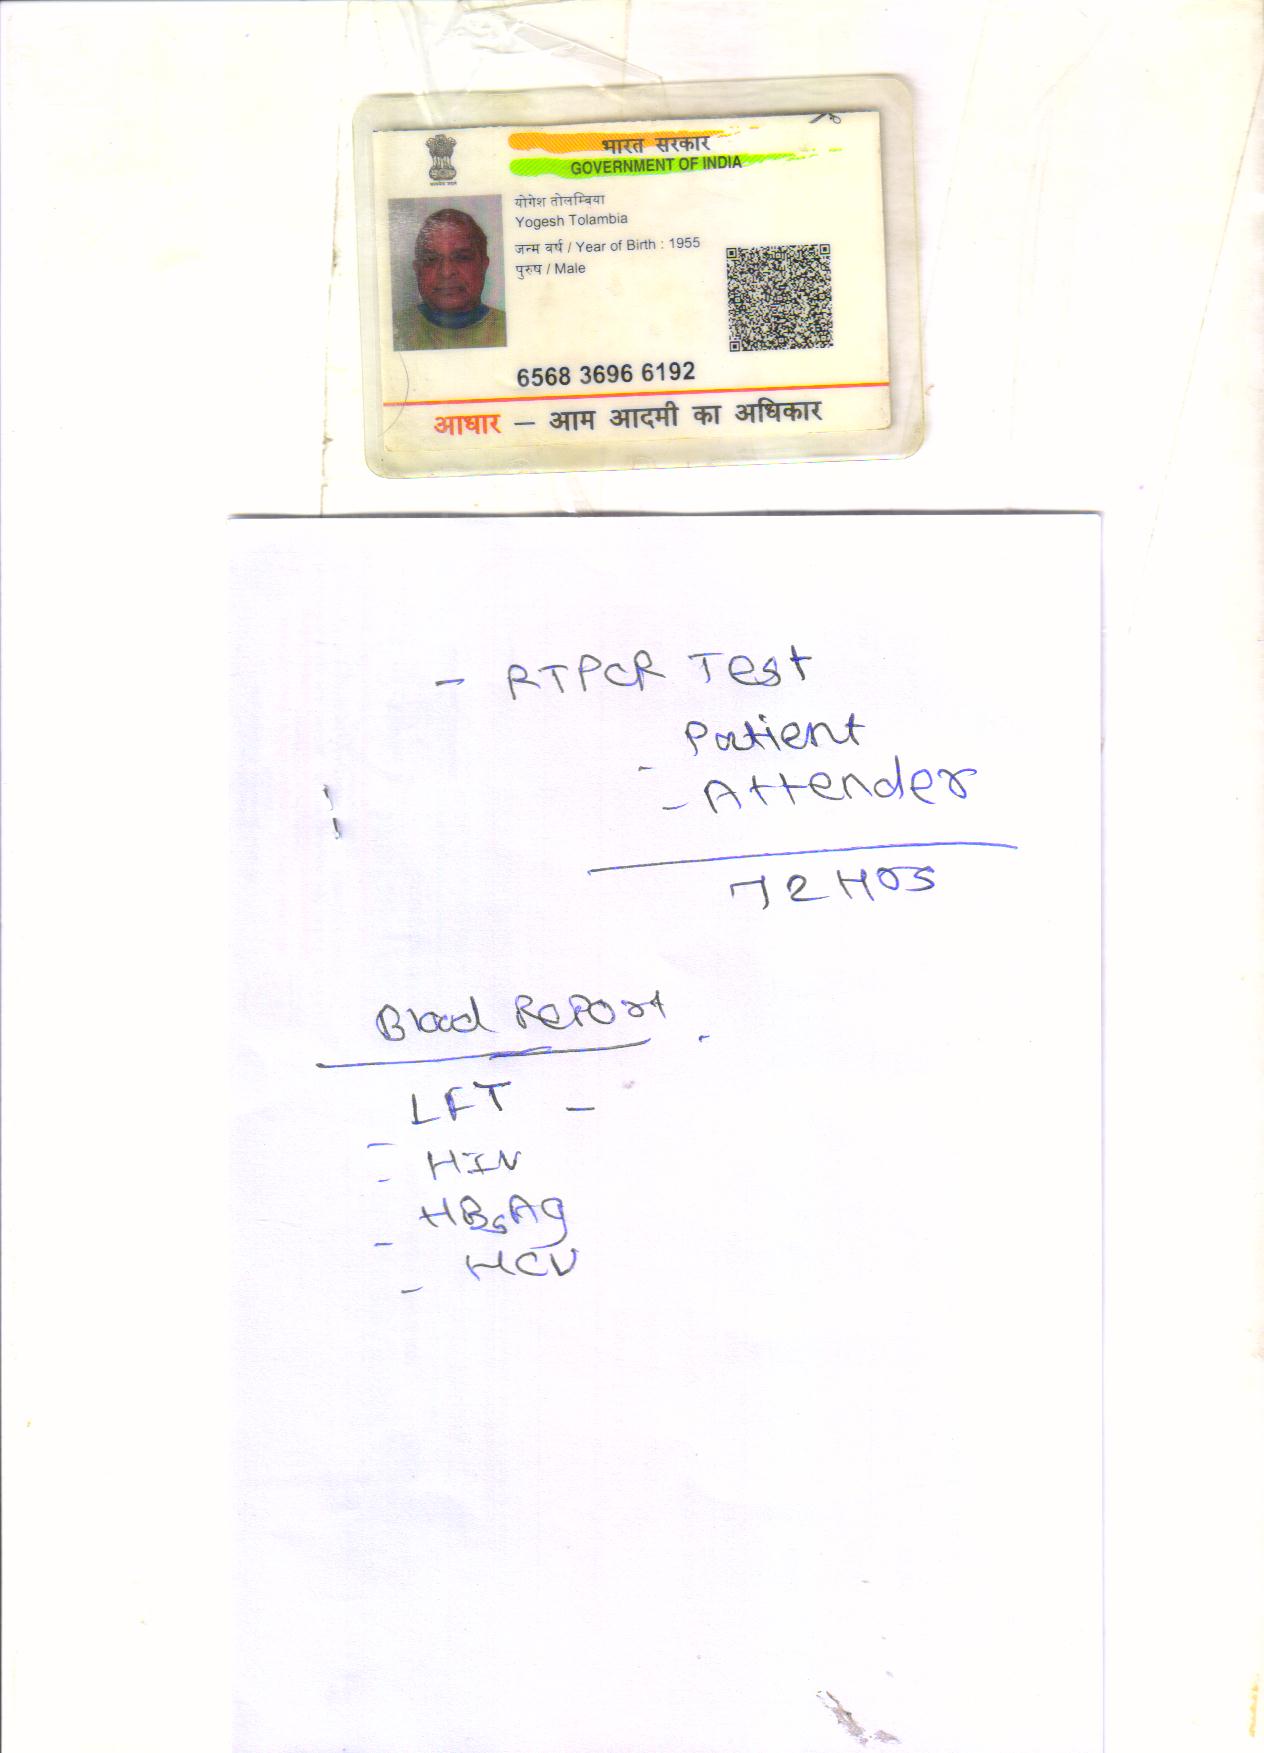 भारत सरकार
GOVERNMENT OF INDIA
योगेश तोलम्बिया
Yogesh Tolambia
जन्म वर्ष / Year of Birth : 1955
पुरुष / Male
6568 3696 6192
आधार – आम आदमी का अधिकार
- RTPCR Test
- Patient
- Attender
72 Hrs
Blood Report
LFT -
- HIV
- HBsAg
- HCV